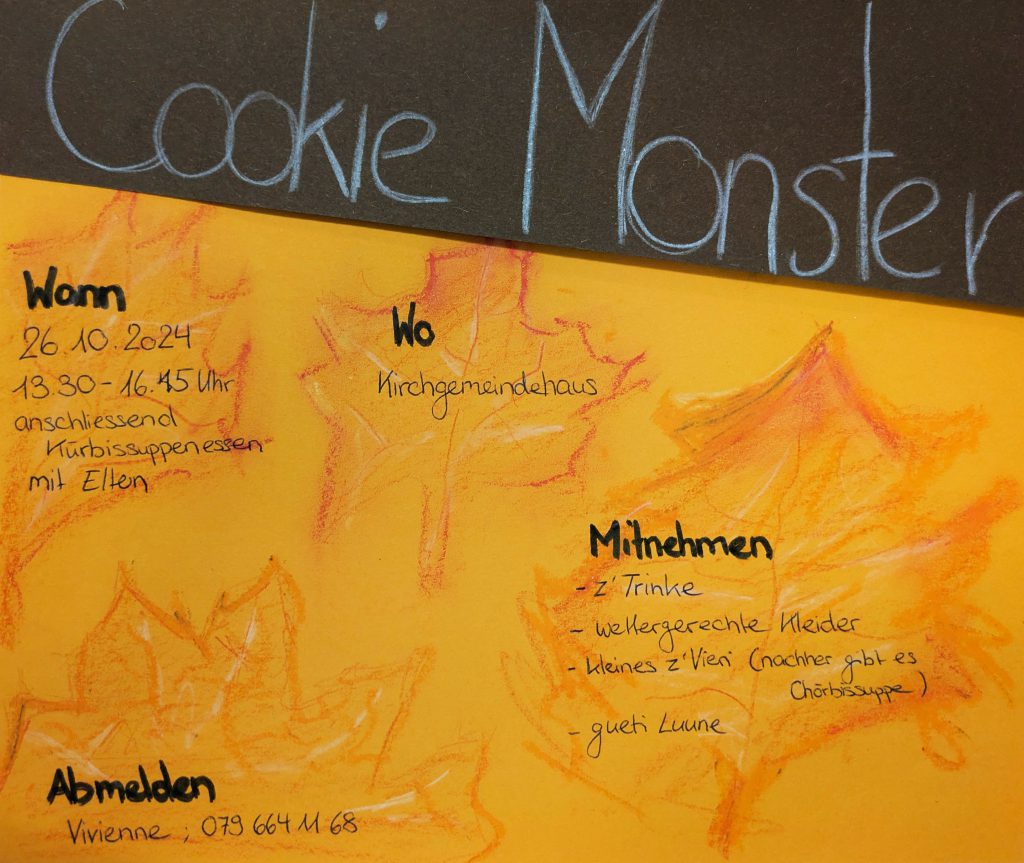 Cookie Monster
Wann
26.10.2024
13.30 - 16.45 Uhr
anschliessend
Kürbissuppenessen
mit Elten
Wo
Kirchgemeindehaus
Mitnehmen
- z'Trinke
- wettergerechte Kleider
- kleines z'Vieri (nachher gibt es
Chörbissuppe)
- gueti Luune
Abmelden
Vivienne ; 079 664 11 68